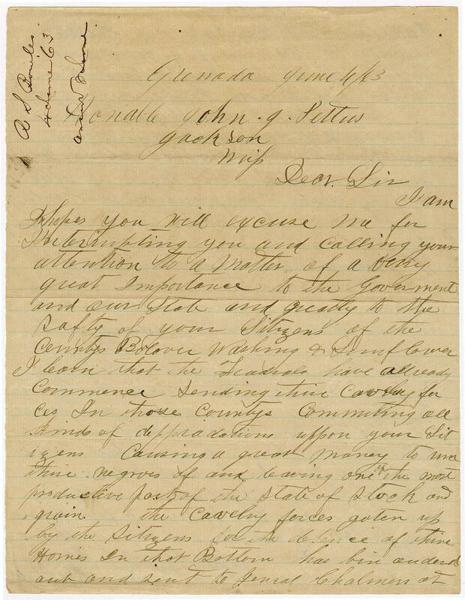 4 June 63
Grenada June 4/63
Honable John. J. Pettus
Jackson
Miss
Dear. Sir
I am
Hopes you will excuse me for
Interrupting you and calling your
attention to a matter of a very
great Importance to the Goverment
and our State and greatly to the
Safty of your Sitizens of the
Countys Bolover Washing & Sunflower
I learn that the Feadrals have allready
Commence Sending thire Cavelry for
ces In those Countys Commiting all
kinds of deppradations uppon your Sit
izens Causing a great maney to run
thire negroes of and leaving one of the most
productive part of the State of Stock and
grain the Cavelry forces goten up
by the Sitizens for the defence of thire
Homes In that Bottom has bin ordered
out and sent to Jenral Chalmers at